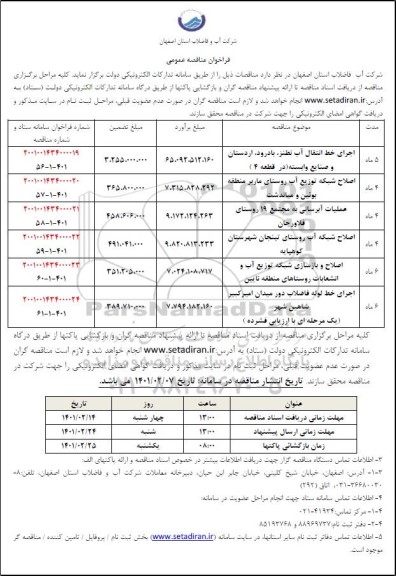 شرکت آب و فاضلاب استان اصفهان
فراخوان مناقصه عمومی
شرکت آب و فاضلاب استان اصفهان در نظر دارد مناقصات ذیل را از طریق سامانه تدارکات الکترونیکی دولت برگزار نماید. کلیه مراحل برگزاری
مناقصه از دریافت اسناد مناقصه تا ارائه پیشنهاد مناقصه گران و بازگشایی پاکتها از طریق درگاه سامانه تدارکات الکترونیکی دولت (ستاد) به
آدرس: www.setadiran.ir انجام خواهد شد و لازم است مناقصه گران در صورت عدم عضویت قبلی، مراحل ثبت نام در سایت مذکور و
دریافت گواهی امضای الکترونیکی را جهت شرکت در مناقصه محقق سازند.
مدت موضوع مناقصه مبلغ برآورد مبلغ تضمین شماره فراخوان سامانه ستاد و شماره مناقصه
۵ ماه اجرای خط انتقال آب نطنز، بادرود، اردستان و صنایع وابسته(در قطعه ۴ ) ۶۵.۰۹۲.۵۱۲.۱۶۰ ۳.۲۵۵.۰۰۰.۰۰۰ ۲۰۰۱۰۰۱۴۳۴۰۰۰۰۱۹ ۵۶-۱-۴۰۱
۴ ماه اصلاح شبکه توزیع آب روستای ماربر منطقه بوئین و میاندشت ۷.۳۱۵.۸۲۸.۴۹۲ ۳۶۵.۸۰۰.۰۰۰ ۲۰۰۱۰۰۱۴۳۴۰۰۰۰۲۰ ۵۷-۱-۴۰۱
۴ ماه عملیات آبرسانی به مجتمع ۱۹ روستای فلاورجان ۹.۱۷۲.۱۲۴.۲۶۳ ۴۵۸.۶۰۶.۰۰۰ ۲۰۰۱۰۰۱۴۳۴۰۰۰۰۲۱ ۵۸-۱-۴۰۱
۴ ماه اصلاح شبکه آب روستای نینجان شهرستان کوهپایه ۹.۸۲۰.۸۱۳.۲۳۳ ۴۹۱.۰۴۱.۰۰۰ ۲۰۰۱۰۰۱۴۳۴۰۰۰۰۲۲ ۵۹-۱-۴۰۱
۶ ماه اصلاح و بازسازی شبکه توزیع آب و انشعابات روستاهای منطقه نائین ۷.۰۲۴.۱۰۸.۷۱۷ ۳۵۱.۲۰۵.۰۰۰ ۲۰۰۱۰۰۱۴۳۴۰۰۰۰۲۳ ۶۰-۱-۴۰۱
۶ ماه اجرای خط لوله فاضلاب دور میدان امیرکبیر شاهین شهر (یک مرحله ای با ارزیابی فشرده ) ۷.۷۹۴.۱۸۲.۱۶۰ ۳۸۹.۷۱۰.۰۰۰ ۲۰۰۱۰۰۱۴۳۴۰۰۰۰۲۴ ۶۱-۱-۴۰۱
کلیه مراحل برگزاری مناقصه از دریافت اسناد مناقصه تا ارائه پیشنهاد مناقصه گران و بازگشایی پاکتها از طریق درگاه
سامانه تدارکات الکترونیکی دولت (ستاد) به آدرس www.setadiran.ir انجام خواهد شد و لازم است مناقصه گران
در صورت عدم عضویت قبلی، مراحل ثبت نام در سایت مذکور و دریافت گواهی امضای الکترونیکی را جهت شرکت در
مناقصه محقق سازند. تاریخ انتشار مناقصه در سامانه: تاریخ ۱۴۰۱/۰۲/۰۷ می باشد.
عنوان ساعت روز تاریخ
مهلت زمانی دریافت اسناد مناقصه ۱۳:۰۰ چهار شنبه ۱۴۰۱/۰۲/۱۴
مهلت زمانی ارسال پیشنهاد ۱۳:۰۰ شنبه ۱۴۰۱/۰۲/۲۴
زمان بازگشائی پاکتها ۰۸:۰۰ یکشنبه ۱۴۰۱/۰۲/۲۵
۳- اطلاعات تماس دستگاه مناقصه گزار جهت دریافت اطلاعات بیشتر در خصوص اسناد مناقصه و ارائه پاکتهای الف:
۱-۳- آدرس: اصفهان، خیابان شیخ کلینی، خیابان جابر ابن حیان، دبیرخانه معاملات شرکت آب و فاضلاب استان اصفهان، تلفن:۸-
۰۳۱-۳۶۶۸۰۰۳۰، اتاق (۲۹۲)
۴- اطلاعات تماس سامانه ستاد جهت انجام مراحل عضویت در سامانه:
۱-۴- مرکز تماس: ۴۱۹۳۴-۰۲۱
۲-۴- دفتر ثبت نام: ۸۸۹۶۹۷۳۷ و ۸۵۱۹۳۷۶۸
۵- اطلاعات تماس دفاتر ثبت نام سایر استانها، در سایت سامانه (www.setadiran.ir) بخش ثبت نام / پروفایل / تامین کننده / مناقصه گر
موجود است.